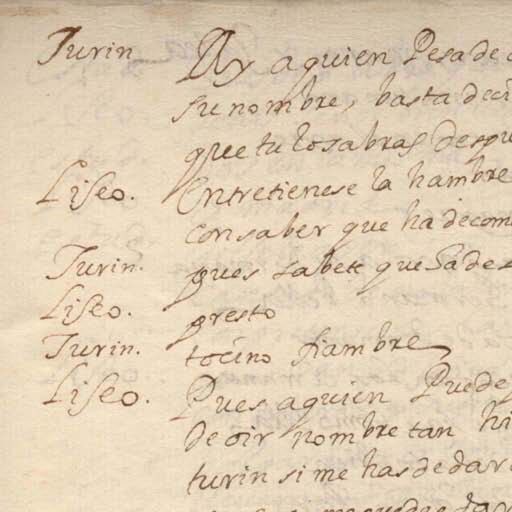 Turin Ay a quien Pesa de
su nombre, basta deci
que tu lo sabras despu
Liseo. Entretienese la hambre
con saber que ha de com
Turin. pues sabete que ha de s
Liseo. presto
Turin. tocino fiambre
Liseo. Pues a quien Puede
de oir nombre tan hi
turin si me has de dar